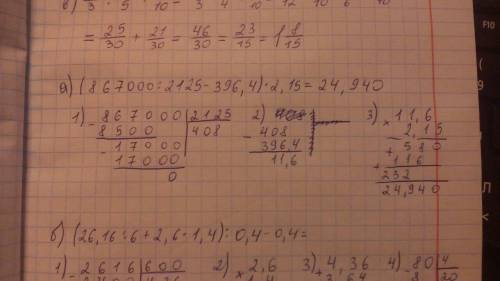 = 25/30 + 21/30 = 46/30 = 23/15 = 1 8/15
а) (867000:2125-396,4)·2,15=24,940
1) - 867000 | 2125
8500 | 408
- 17000
17000
0
2)
- 408
396,4
11,6
3) × 11,6
2,15
+ 580
+ 116
232
24,940
б) (26,16:6+2,6·1,4):0,4-0,4=
1) - 2616 | 600
2) × 2,6
3) + 4,36
4) - 80 | 4
20